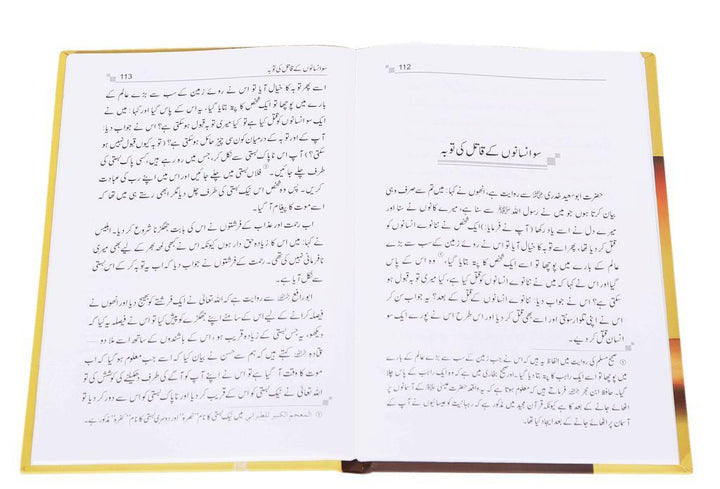 112
سو انسانوں کے قاتل کی توبہ
حضرت ابو سعید خدری رضی اللہ عنہ سے روایت ہے، انھوں نے کہا: میں تم سے صرف وہی
بیان کرتا ہوں جو میں نے رسول اللہ ﷺ سے سنا ہے، میرے کانوں نے سنا اور
میرے دل نے اسے یاد رکھا (آپ نے فرمایا:) ایک شخص نے ننانوے انسانوں کو
قتل کر دیا تھا، پھر اسے توبہ کا خیال آیا تو اس نے روئے زمین کے سب سے بڑے
عالم کے بارے میں پوچھا تو اسے ایک شخص کا پتا بتایا گیا، ① وہ اس کے پاس
گیا اور اس نے کہا کہ میں نے ننانوے انسانوں کو قتل کیا ہے، کیا میری توبہ قبول ہو
سکتی ہے؟ اس شخص نے جواب دیا: ننانوے انسانوں کے قتل کے بعد؟ یہ جواب سن کر
اس نے اپنی تلوار سونتی اور اسے بھی قتل کر دیا اور اس طرح اس نے پورے ایک سو
انسان قتل کر دیے۔
① صحیح مسلم کی روایت میں الفاظ یہ ہیں کہ اس نے جب زمین کے سب سے بڑے عالم کے بارے
میں پوچھا تو اسے ایک راہب کا پتا بتایا گیا۔ اور صحیح بخاری میں ہے کہ وہ ایک راہب کے پاس چلا
گیا۔ حافظ ابن حجر رحمہ اللہ فرماتے ہیں کہ معلوم ہوتا ہے کہ یہ واقعہ حضرت عیسیٰ علیہ السلام کے آسمانوں پر
اٹھائے جانے کے بعد کا ہے کیونکہ قرآن مجید میں مذکور ہے کہ رہبانیت کو عیسائیوں نے آپ کے
آسمان پر اٹھائے جانے کے بعد ایجاد کیا تھا۔
سو انسانوں کے قاتل کی توبہ
113
اسے پھر توبہ کا خیال آیا تو اس نے روئے زمین کے سب سے بڑے عالم کے
بارے میں پوچھا تو اسے ایک شخص کا پتا بتایا گیا، یہ اس کے پاس گیا اور کہا: میں نے
ایک سو انسانوں کو قتل کیا ہے تو کیا میری توبہ قبول ہو سکتی ہے؟ اس نے جواب دیا:
آپ کے اور توبہ کے درمیان کون سی چیز حائل ہو سکتی ہے؟ (توبہ کیوں قبول نہیں ہو
سکتی؟) آپ اس ناپاک بستی سے نکل کر، جس میں رہ رہے ہیں، کسی پاک بستی کی
طرف چلے جائیں۔ ① فلاں بستی میں چلے جائیں اور اس میں اپنے رب کی عبادت
کریں۔ پس وہ شخص اس نیک بستی کی طرف چل دیا مگر ابھی رستے ہی میں تھا کہ
اسے موت کا پیغام آ گیا۔
اب رحمت اور عذاب کے فرشتوں نے اس کی بابت جھگڑنا شروع کر دیا۔ ابلیس
نے کہا: میں اس کا زیادہ حق دار ہوں کیونکہ اس نے کبھی لمحہ بھر کے لیے بھی میری
نافرمانی نہیں کی تھی۔ رحمت کے فرشتوں نے جواب دیا کہ اب یہ توبہ کر کے اس بستی
سے نکل آیا ہے۔
ابو رافع رحمہ اللہ سے روایت ہے کہ اللہ تعالیٰ نے ایک فرشتے کو بھیج دیا اور انھوں نے
فیصلہ کرانے کے لیے اس کے سامنے اپنے جھگڑے کو پیش کیا تو اس نے فیصلہ یہ کیا کہ
دیکھو، یہ جس بستی کے زیادہ قریب ہو اس کے باشندوں کے ساتھ اسے ملا دو۔
قتادہ رحمہ اللہ کہتے ہیں کہ ہم سے حسن نے بیان کیا کہ اسے جب معلوم ہوا کہ اب
موت کا وقت آ گیا ہے تو اس نے اپنے آپ کو آگے کی طرف جھکیلنے کی کوشش کی تو
اللہ تعالیٰ نے اسے نیک بستی کے قریب کر دیا اور ناپاک بستی کو اس سے دور کر دیا
① المعجم الكبير للطبراني میں نیک بستی کا نام ''نصرہ'' اور دوسری بستی کا نام ''کفرہ'' مذکور ہے۔